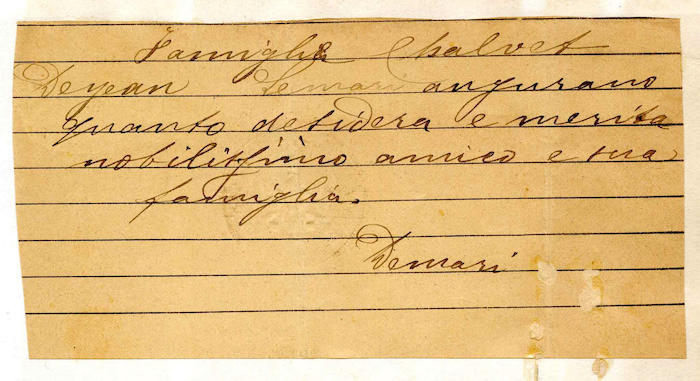 Famiglie Chalvet
Dejean Demari augurano
quanto desidera e merita
nobilissimo amico e sua
famiglia.
Demari